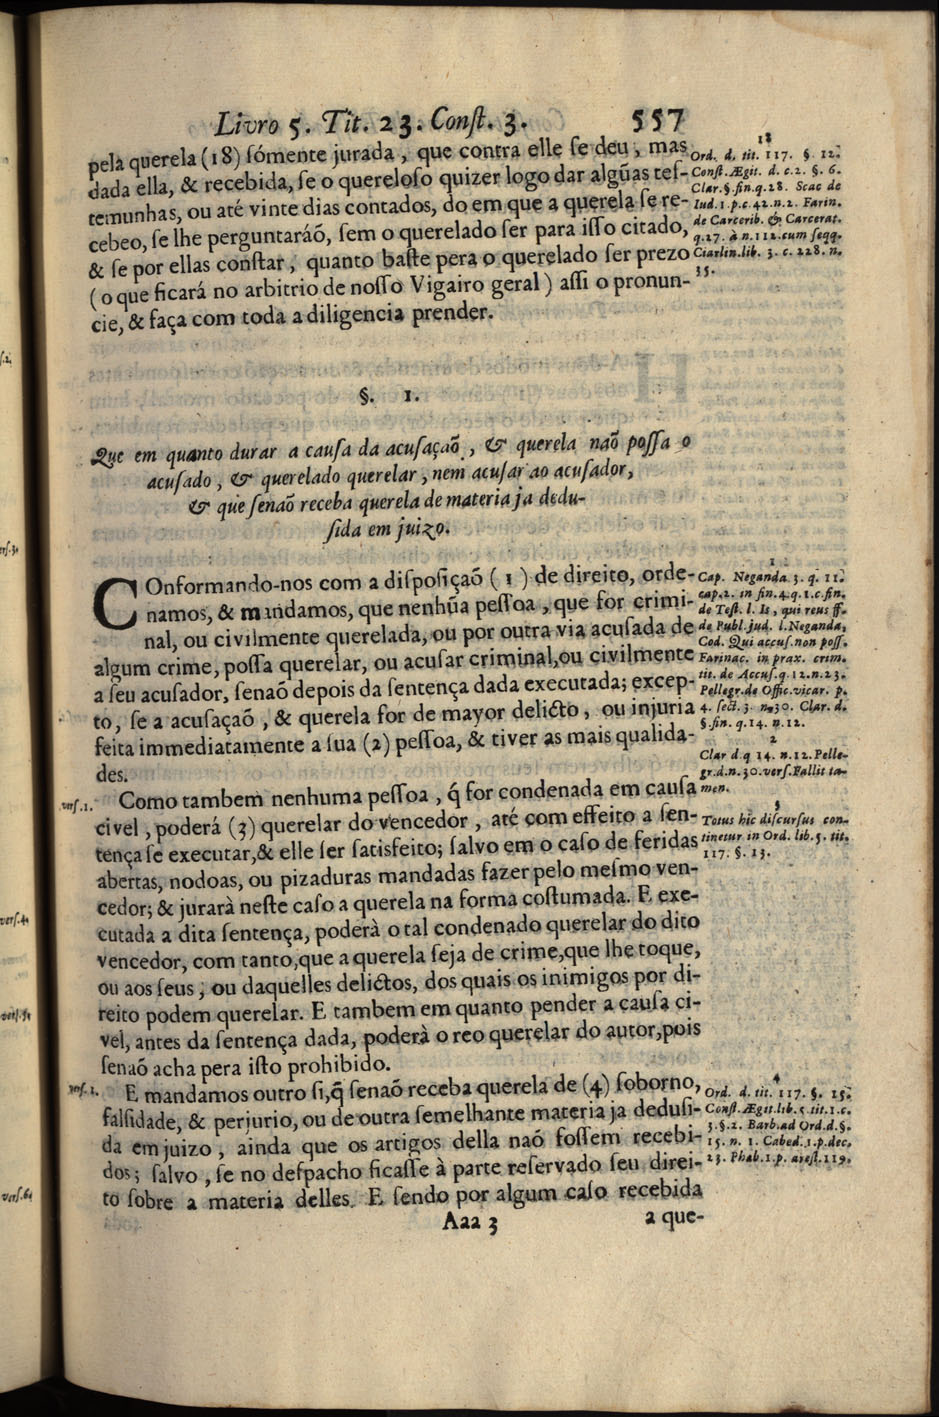 Livro 5. Tit. 23. Conſt. 3. 557
pela querela (18) ſómente jurada, que contra elle ſe deu, mas
dada ella, & recebida, ſe o quereloſo quizer logo dar algũas teſ-
temunhas, ou até vinte dias contados, do em que a querela ſe re-
cebeo, ſe lhe perguntaráõ, ſem o querelado ſer para iſſo citado,
& ſe por ellas conſtar, quanto baſte pera o querelado ſer prezo
(o que ficará no arbitrio de noſſo Vigairo geral) aſſi o pronun-
cie, & faça com toda a diligencia prender.
18
Ord. d. tit. 117. §. 12.
Conſt. Ægit. d. c. 2. §. 6.
Clar. §. fin. q. 28. Scac de
Iud. 1. p. c. 42. n. 2. Farin.
de Carcerib. & Carcerat.
q. 27. à n. 112. cum ſeqq.
Ciarlin. lib. 3. c. 228. n.
35.
§. 1.
Que em quanto durar a cauſa da acuſaçaõ, & querela naõ poſſa o
acuſado, & querelado querelar, nem acuſar ao acuſador,
& que ſenaõ receba querela de materia ja dedu-
ſida em juizo.
COnformando-nos com a diſpoſiçaõ (1) de direito, orde-
namos, & mandamos, que nenhũa peſſoa, que for crimi-
nal, ou civilmente querelada, ou por outra via acuſada de
algum crime, poſſa querelar, ou acuſar criminal, ou civilmente
a ſeu acuſador, ſenaõ depois da ſentença dada executada; excep-
to, ſe a acuſaçaõ, & querela for de mayor delicto, ou injuria
feita immediatamente a ſua (2) peſſoa, & tiver as mais qualida-
des.
1
Cap. Neganda 3. q. 11.
cap. 2. in fin. 4. q. 1. c. fin.
de Teſt. l. Is, qui reus ff.
de Publ. jud. l. Neganda,
Cod. Qui accuſ. non poſſ.
Farinac. in prax. crim.
tit. de Accuſ. q. 12. n. 23.
Pellegr. de Offic. vicar. p.
4. ſect. 3. n. 30. Clar. d.
§. fin. q. 14. n. 12.
2
Clar d. q 14. n. 12. Pelle-
gr. d. n. 30. verſ. Fallit ta-
men.
verſ. 1.
Como tambem nenhuma peſſoa, q̃ for condenada em cauſa
civel, poderá (3) querelar do vencedor, até com effeito a ſen-
tença ſe executar, & elle ſer ſatisfeito; ſalvo em o caſo de feridas
abertas, nodoas, ou pizaduras mandadas fazer pelo meſmo ven-
cedor; & jurarà neſte caſo a querela na forma coſtumada. E exe-
cutada a dita ſentença, poderà o tal condenado querelar do dito
vencedor, com tanto, que a querela ſeja de crime, que lhe toque,
ou aos ſeus, ou daquelles delictos, dos quais os inimigos por di-
reito podem querelar. E tambem em quanto pender a cauſa ci-
vel, antes da ſentença dada, poderà o reo querelar do autor, pois
ſenaõ acha pera iſto prohibido.
3
Totus hic diſcurſus con-
tinetur in Ord. lib. 5. tit.
117. §. 13.
verſ. 2.
E mandamos outro ſi, q̃ ſenaõ receba querela de (4) ſoborno,
falſidade, & perjurio, ou de outra ſemelhante materia ja deduſi-
da em juizo, ainda que os artigos della naõ foſſem recebi-
dos; ſalvo, ſe no deſpacho ficaſſe à parte reſervado ſeu direi-
to ſobre a materia delles. E ſendo por algum caſo recebida
4
Ord. d. tit. 117. §. 15.
Conſt. Ægit. lib. 5. tit. 1. c.
3. §. 2. Barb. ad Ord. d. §.
15. n. 1. Cabed. 1. p. dec.
23. Phab. 1. p. areſt. 119.
Aaa 3 a que-
verſ. 4.
verſ. 5.
verſ. 6.